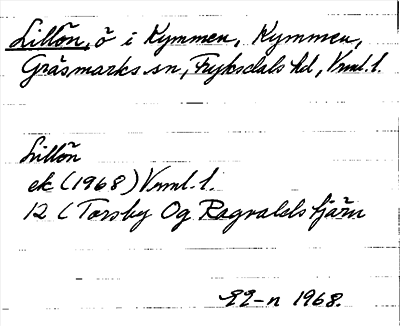 Lillön, ö i Kymmen, Kymmen,
Gräsmarks sn, Fryksdals hd, Vrml. l.
Lillön
ek (1968) Vrml. l.
12 C Torsby Og Ragvaldstjärn
22-n 1968.